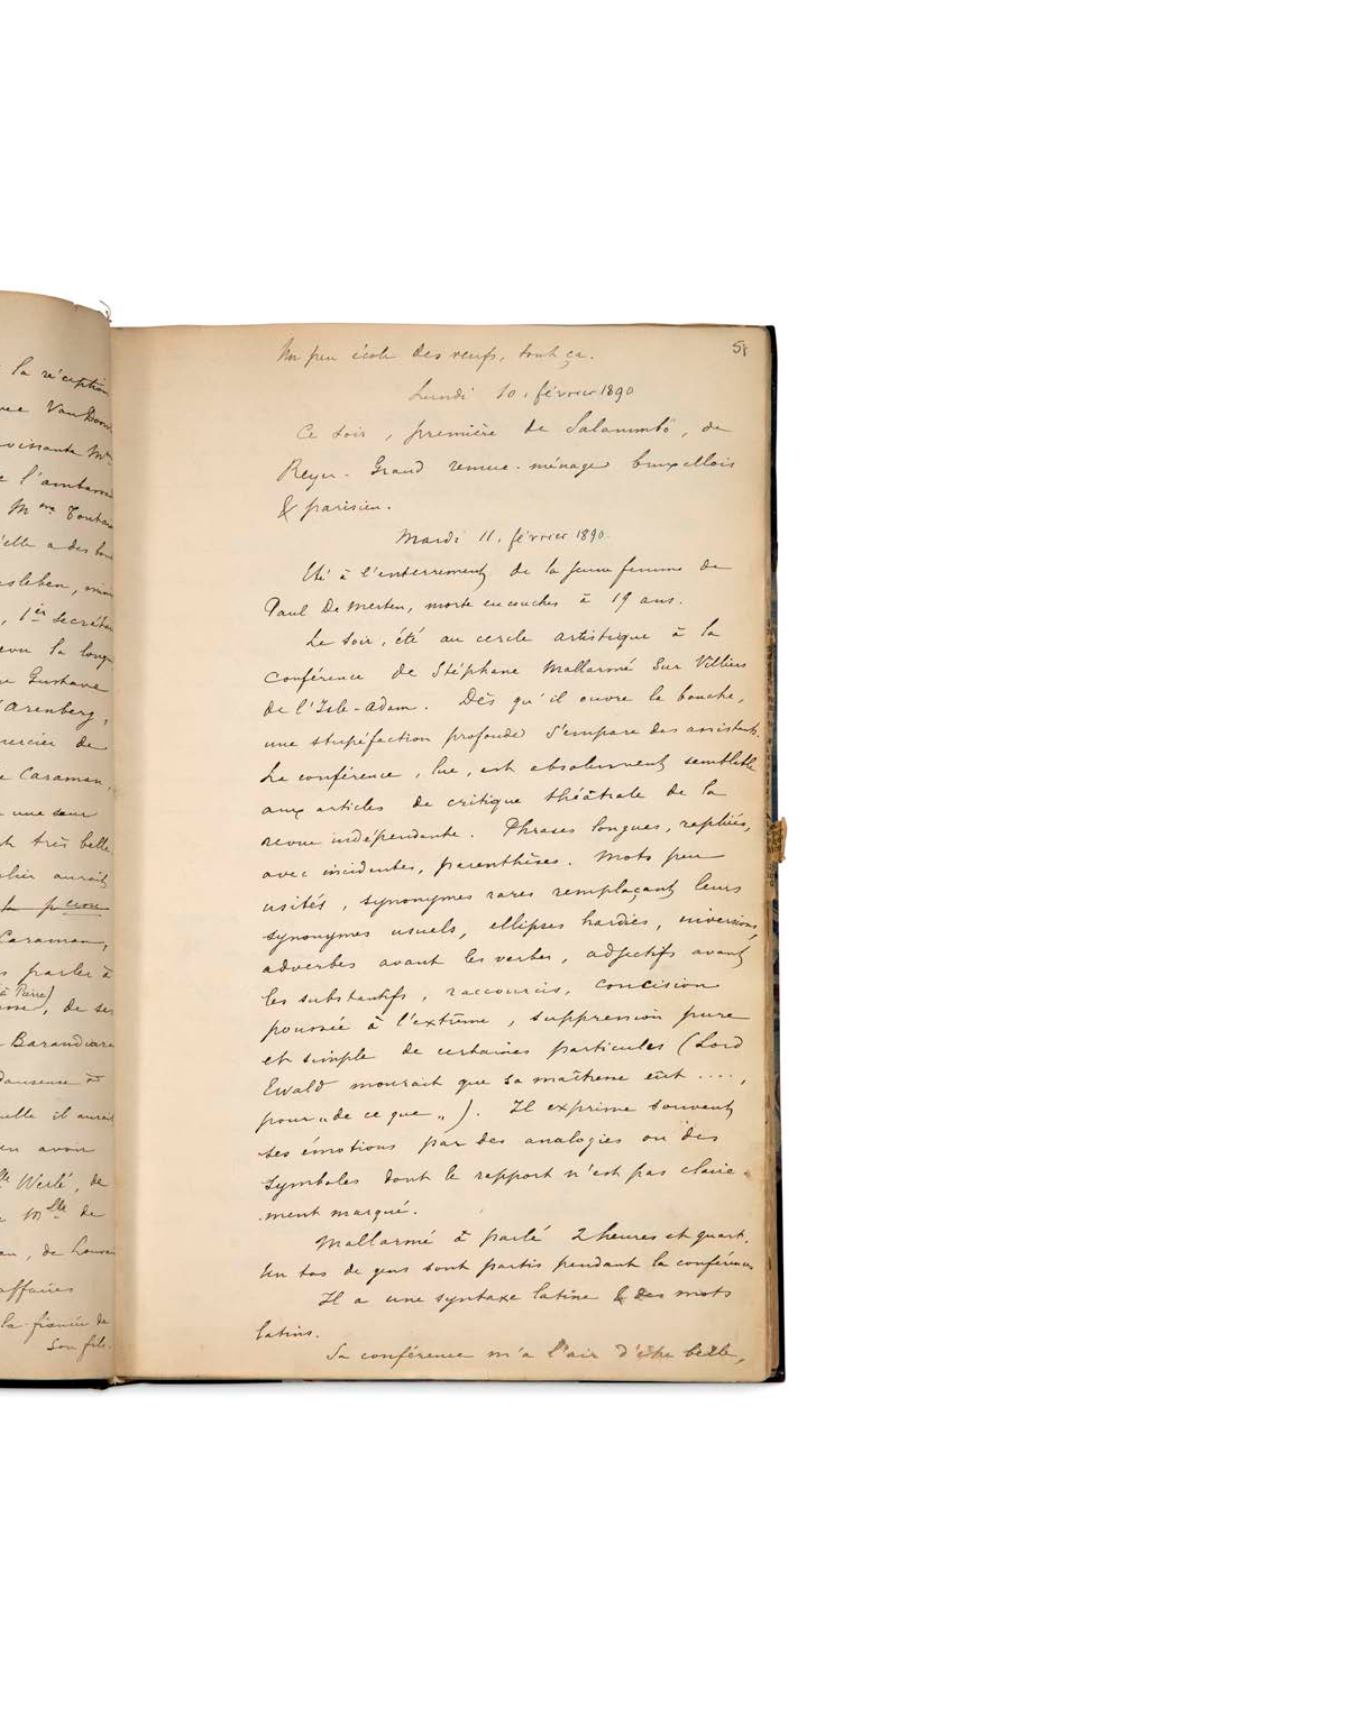 la réception
Van
l'
Mme
'elle a des
, 1er
la
Gustave
'Arenberg,
de
Caraman,
une
très belle.
aurait
Caraman,
parler à
(à Pierre)
, de ses
danseuse
il aurait
avoir
Werlé, de
Mlle de
, de
affaires
la fiancée de
son fils.
58
Un peu école des veufs, tout ça.
Lundi 10. février 1890
Ce soir, première de Salammbô, de
Reyer. Grand remue-ménage bruxellois
& parisien.
Mardi 11. février 1890.
Été à l'enterrement de la jeune femme de
Paul De Merten, morte en couches à 19 ans.
Le soir, été au cercle artistique à la
conférence de Stéphane Mallarmé sur Villiers
de l'Isle-Adam. Dès qu'il ouvre la bouche,
une stupéfaction profonde s'empare des assistants.
La conférence, lue, est absolument semblable
aux articles de critique théâtrale de la
revue indépendante. Phrases longues, repliées,
avec incidentes, parenthèses. Mots peu
usités, synonymes rares remplaçant leurs
synonymes usuels, ellipses hardies, inversions,
adverbes avant les verbes, adjectifs avant
les substantifs, raccourcis, concision
poussée à l'extrême, suppression pure
et simple de certaines particules (Lord
Ewald mourait que sa maîtresse eût ....,
pour „de ce que„). Il exprime souvent
ses émotions par des analogies ou des
symboles dont le rapport n'est pas claire-
ment marqué.
Mallarmé a parlé 2 heures et quart.
Un tas de gens sont partis pendant la conférence
Il a une syntaxe latine & des mots
latins.
Sa conférence m'a l'air d'être belle,